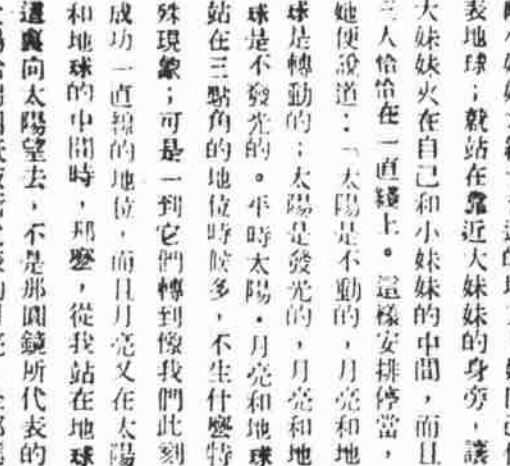 表地球；就站在靠近大妹妹的身旁，讓
大妹妹夾在自己和小妹妹的中間，而且
三人恰恰在一直綫上。這樣安排停當，
她便說道：「太陽是不動的，月亮和地
球是轉動的；太陽是發光的，月亮和地
球是不發光的。平時太陽・月亮和地球
站在三點角的地位時候多，不生什麼特
殊現象；可是一到它們轉到像我們此刻
成功一直線的地位，而且月亮又在太陽
和地球的中間時，那麼，從我站在地球
這裏向太陽望去，不是那圓鏡所代表的